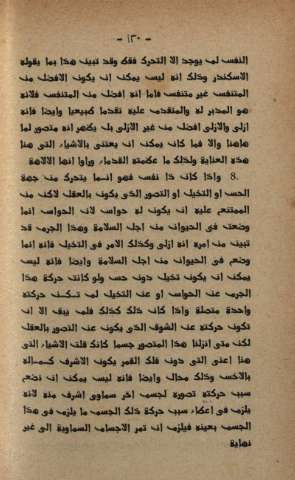 — ١٣٠ —
النفس لم يوجد الا التحرك فقط وقد تبين هذا بما يقوله
الاسكندر وذلك انه ليس يمكن ان يكون الافضل من
المتنفس غير متنفس فاما انه افضل من المتنفس فلانه
هو المدبر له والمتقدم عليه تقدما طبيعيا وايضا فانه
ازلى والازلى افضل من غير الازلى بل يظهر انه متصور لما
هاهنا والا فما كان يمكن ان يعتنى بالاشياء التى هنا
هذه العناية ولذلك ما عظمته القدماء وراوا انها الالاهة
8. واذا كان ذا نفس فهو انما يتحرك من جهة
الحس او التخيل او التصور الذى يكون بالعقل لاكن من
الممتنع عليه ان يكون له حواس لان الحواس انما
وضعت فى الحيوان من اجل السلامة وهذا الجرم قد
تبين من امره انه ازلى وكذلك الامر فى التخيل فانه انما
وضع فى الحيوان من اجل السلامة وايضا فانه ليس
يمكن ان يكون تخيل دون حس ولو كانت حركة هذا
الجرم عن الحواس او عن التخيل لم تكن حركته
واحدة متصلة واذا كان ذلك كذلك فلم يبق الا ان
تكون حركته عن الشوق الذى يكون عن التصور بالعقل
لكن متى انزلنا هذا المتصور جسما كانك قلت الاشياء التى
هنا اعنى التى دون فلك القمر يكون الاشرف كماله
بالاخس وذلك محال وايضا فانه ليس يمكن ان نضع
سبب حركته تصوره لجسم اخر سماوى اشرف منه لانه
يلزم فى اعطاء سبب حركة ذلك الجسم ما يلزم فى هذا
الجسم بعينه فيلزم ان تمر الاجسام السماوية الى غير
نهاية